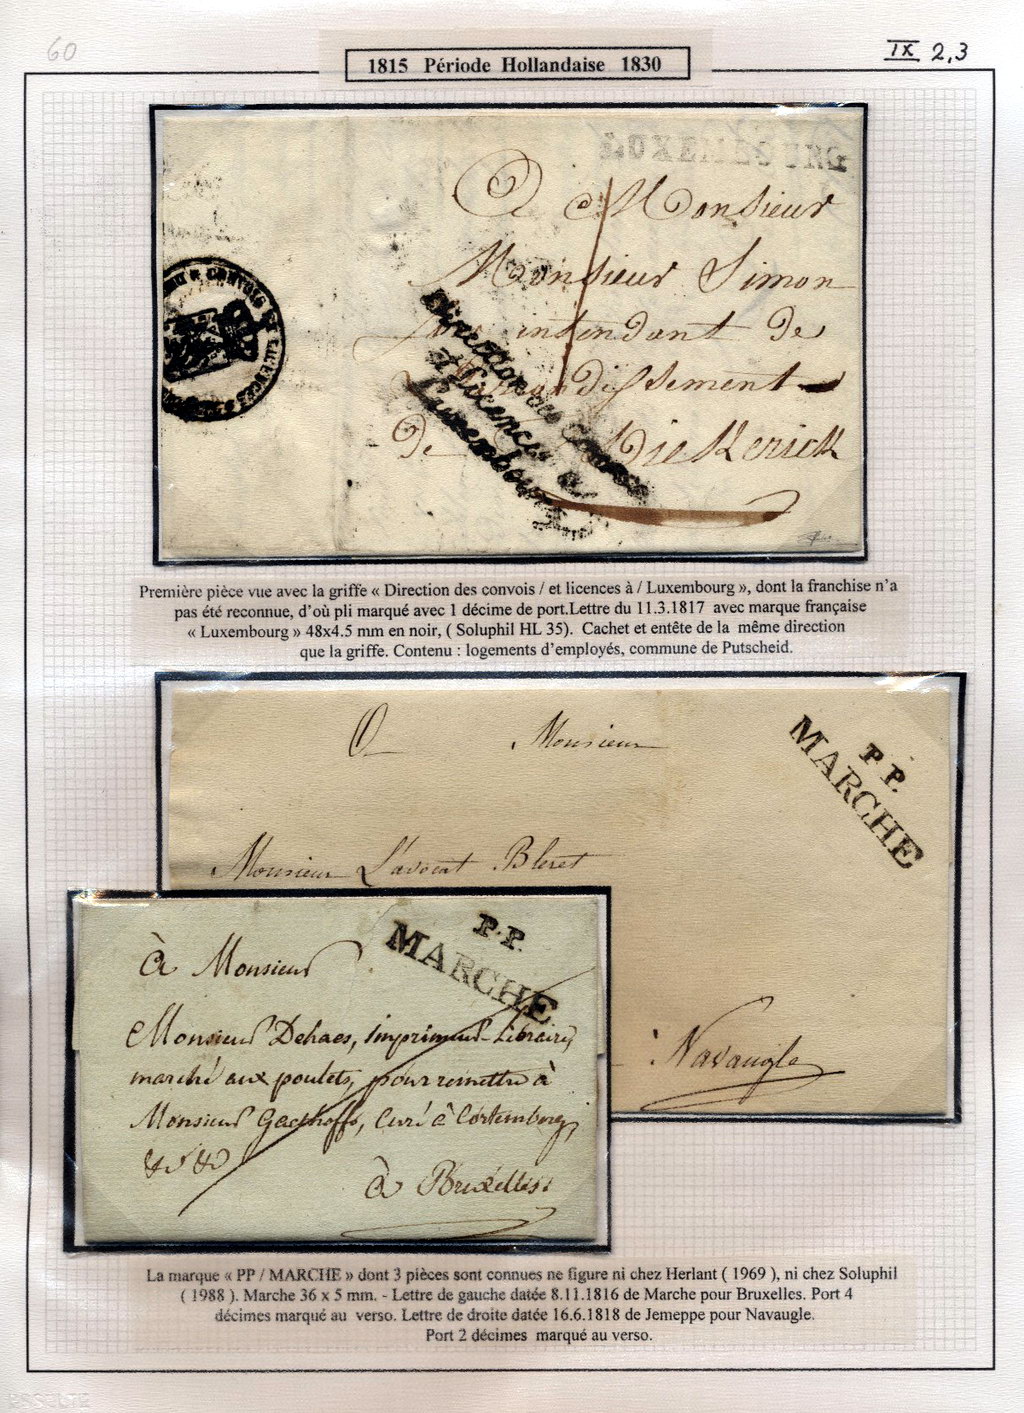 60
IX 2,3
1815 Période Hollandaise 1830
LUXEMBOURG
A Monsieur
Monsieur Simon
intendant de
de Diekerick
Direction des Convois
et Licences à
Luxembourg
CONVOIS ET LICENCES
Première pièce vue avec la griffe « Direction des convois / et licences à / Luxembourg », dont la franchise n’a
pas été reconnue, d’où pli marqué avec 1 décime de port.Lettre du 11.3.1817 avec marque française
« Luxembourg » 48x4.5 mm en noir, ( Soluphil HL 35). Cachet et entête de la même direction
que la griffe. Contenu : logements d’employés, commune de Putscheid.
A Monsieur
P.P.
MARCHE
Monsieur L'avocat Bleret
à Navaugle
P.P.
MARCHE
à Monsieur
Monsieur Dehaes, imprimeur-Libraire,
marché aux poulets, pour remettre à
Monsieur Gaethofs, Curé à Cortemberg
&c &c
à Bruxelles
La marque « PP / MARCHE » dont 3 pièces sont connues ne figure ni chez Herlant ( 1969 ), ni chez Soluphil
( 1988 ). Marche 36 x 5 mm. - Lettre de gauche datée 8.11.1816 de Marche pour Bruxelles. Port 4
décimes marqué au verso. Lettre de droite datée 16.6.1818 de Jemeppe pour Navaugle.
Port 2 décimes marqué au verso.